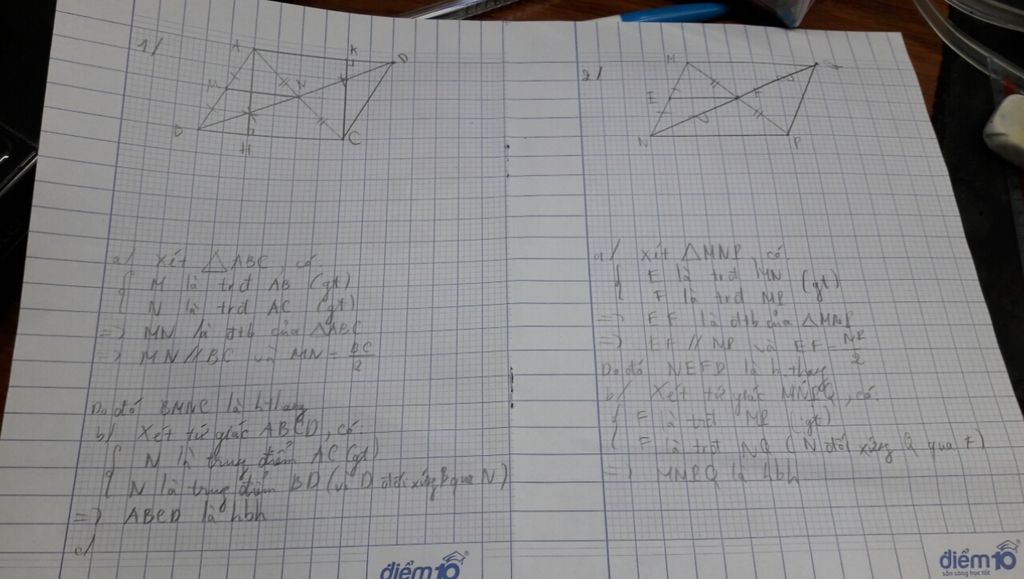 1/
A K D
M N
B H C
a/ Xét △ABC, có:
M là trđ AB (gt)
N là trđ AC (gt)
=> MN là đtb của △ABC
=> MN // BC và MN = BC/2
Do đó BMNC là hthang
b/ Xét tứ giác ABCD, có:
N là trung điểm AC (gt)
N là trung điểm BD (vì D đối xứng B qua N)
=> ABCD là hbh
c/
điểm10
2/
M Q
E F
N P
a/ Xét △MNP, có:
E là trđ MN (gt)
F là trđ MP (gt)
=> EF là đtb của △MNP
=> EF // NP và EF = NP/2
Do đó NEFP là h.thang
b/ Xét tứ giác MNPQ, có:
F là trđ MP (gt)
F là trđ NQ (N đối xứng Q qua F)
=> MNPQ là hbh
điểm10
sẵn sàng học tốt